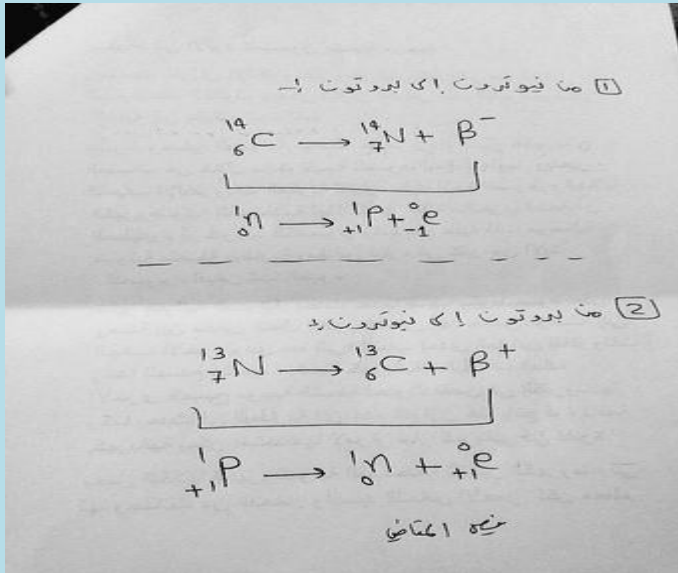 1 من نيوترون إلى بروتون :-
¹⁴₆C → ¹⁴₇N + β⁻
¹₀n → ¹₊₁P + ⁰₋₁e
2 من بروتون إلى نيوترون :-
¹³₇N → ¹³₆C + β⁺
¹₊₁P → ¹₀n + ⁰₊₁e